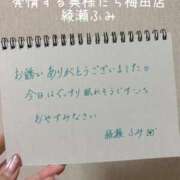 発情する奥様たち梅田店
綾瀬ふみ
お誘いありがとうございました
今日はぐっすり眠れそうです
おやすみなさい
綾瀬 ふみ